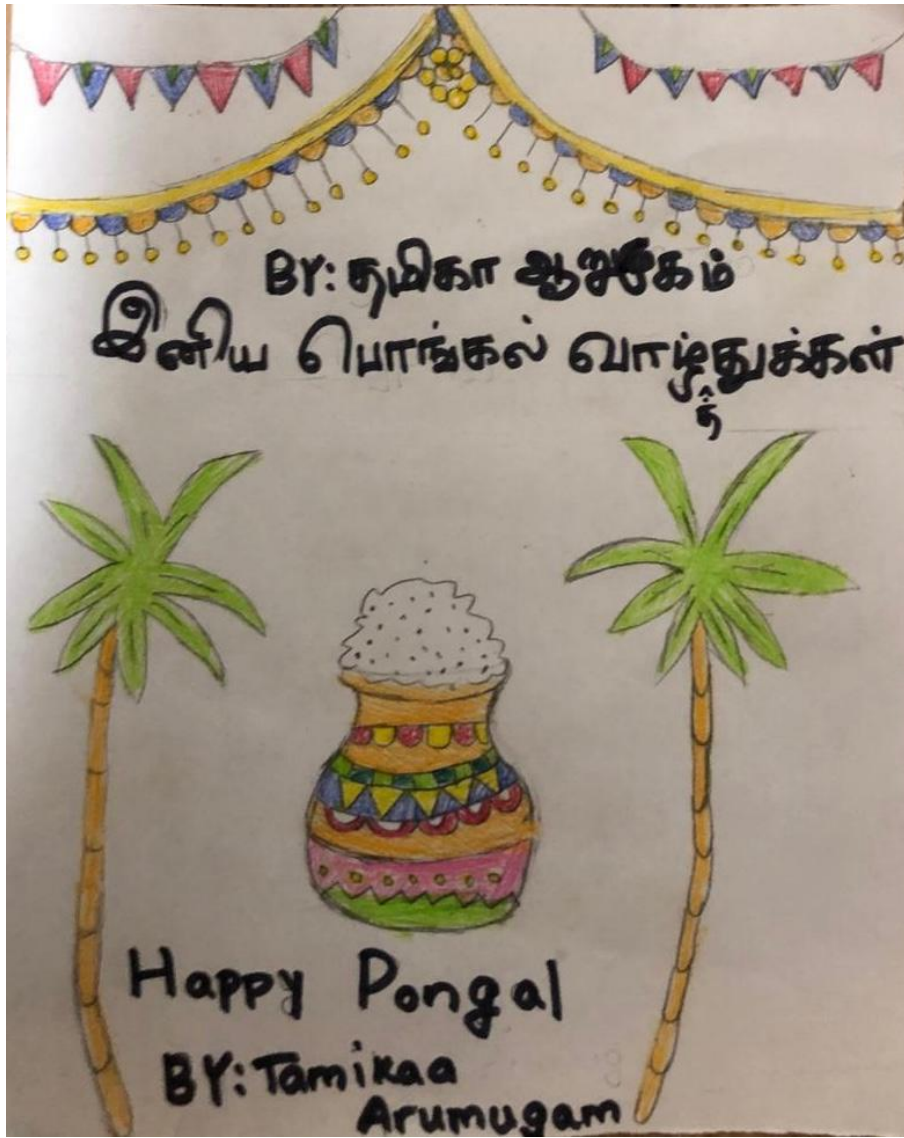 BY: தமிகா ஆறுமுகம்
இனிய பொங்கல் வாழ்துக்கள்
த்
Happy Pongal
BY: Tamikaa
Arumugam